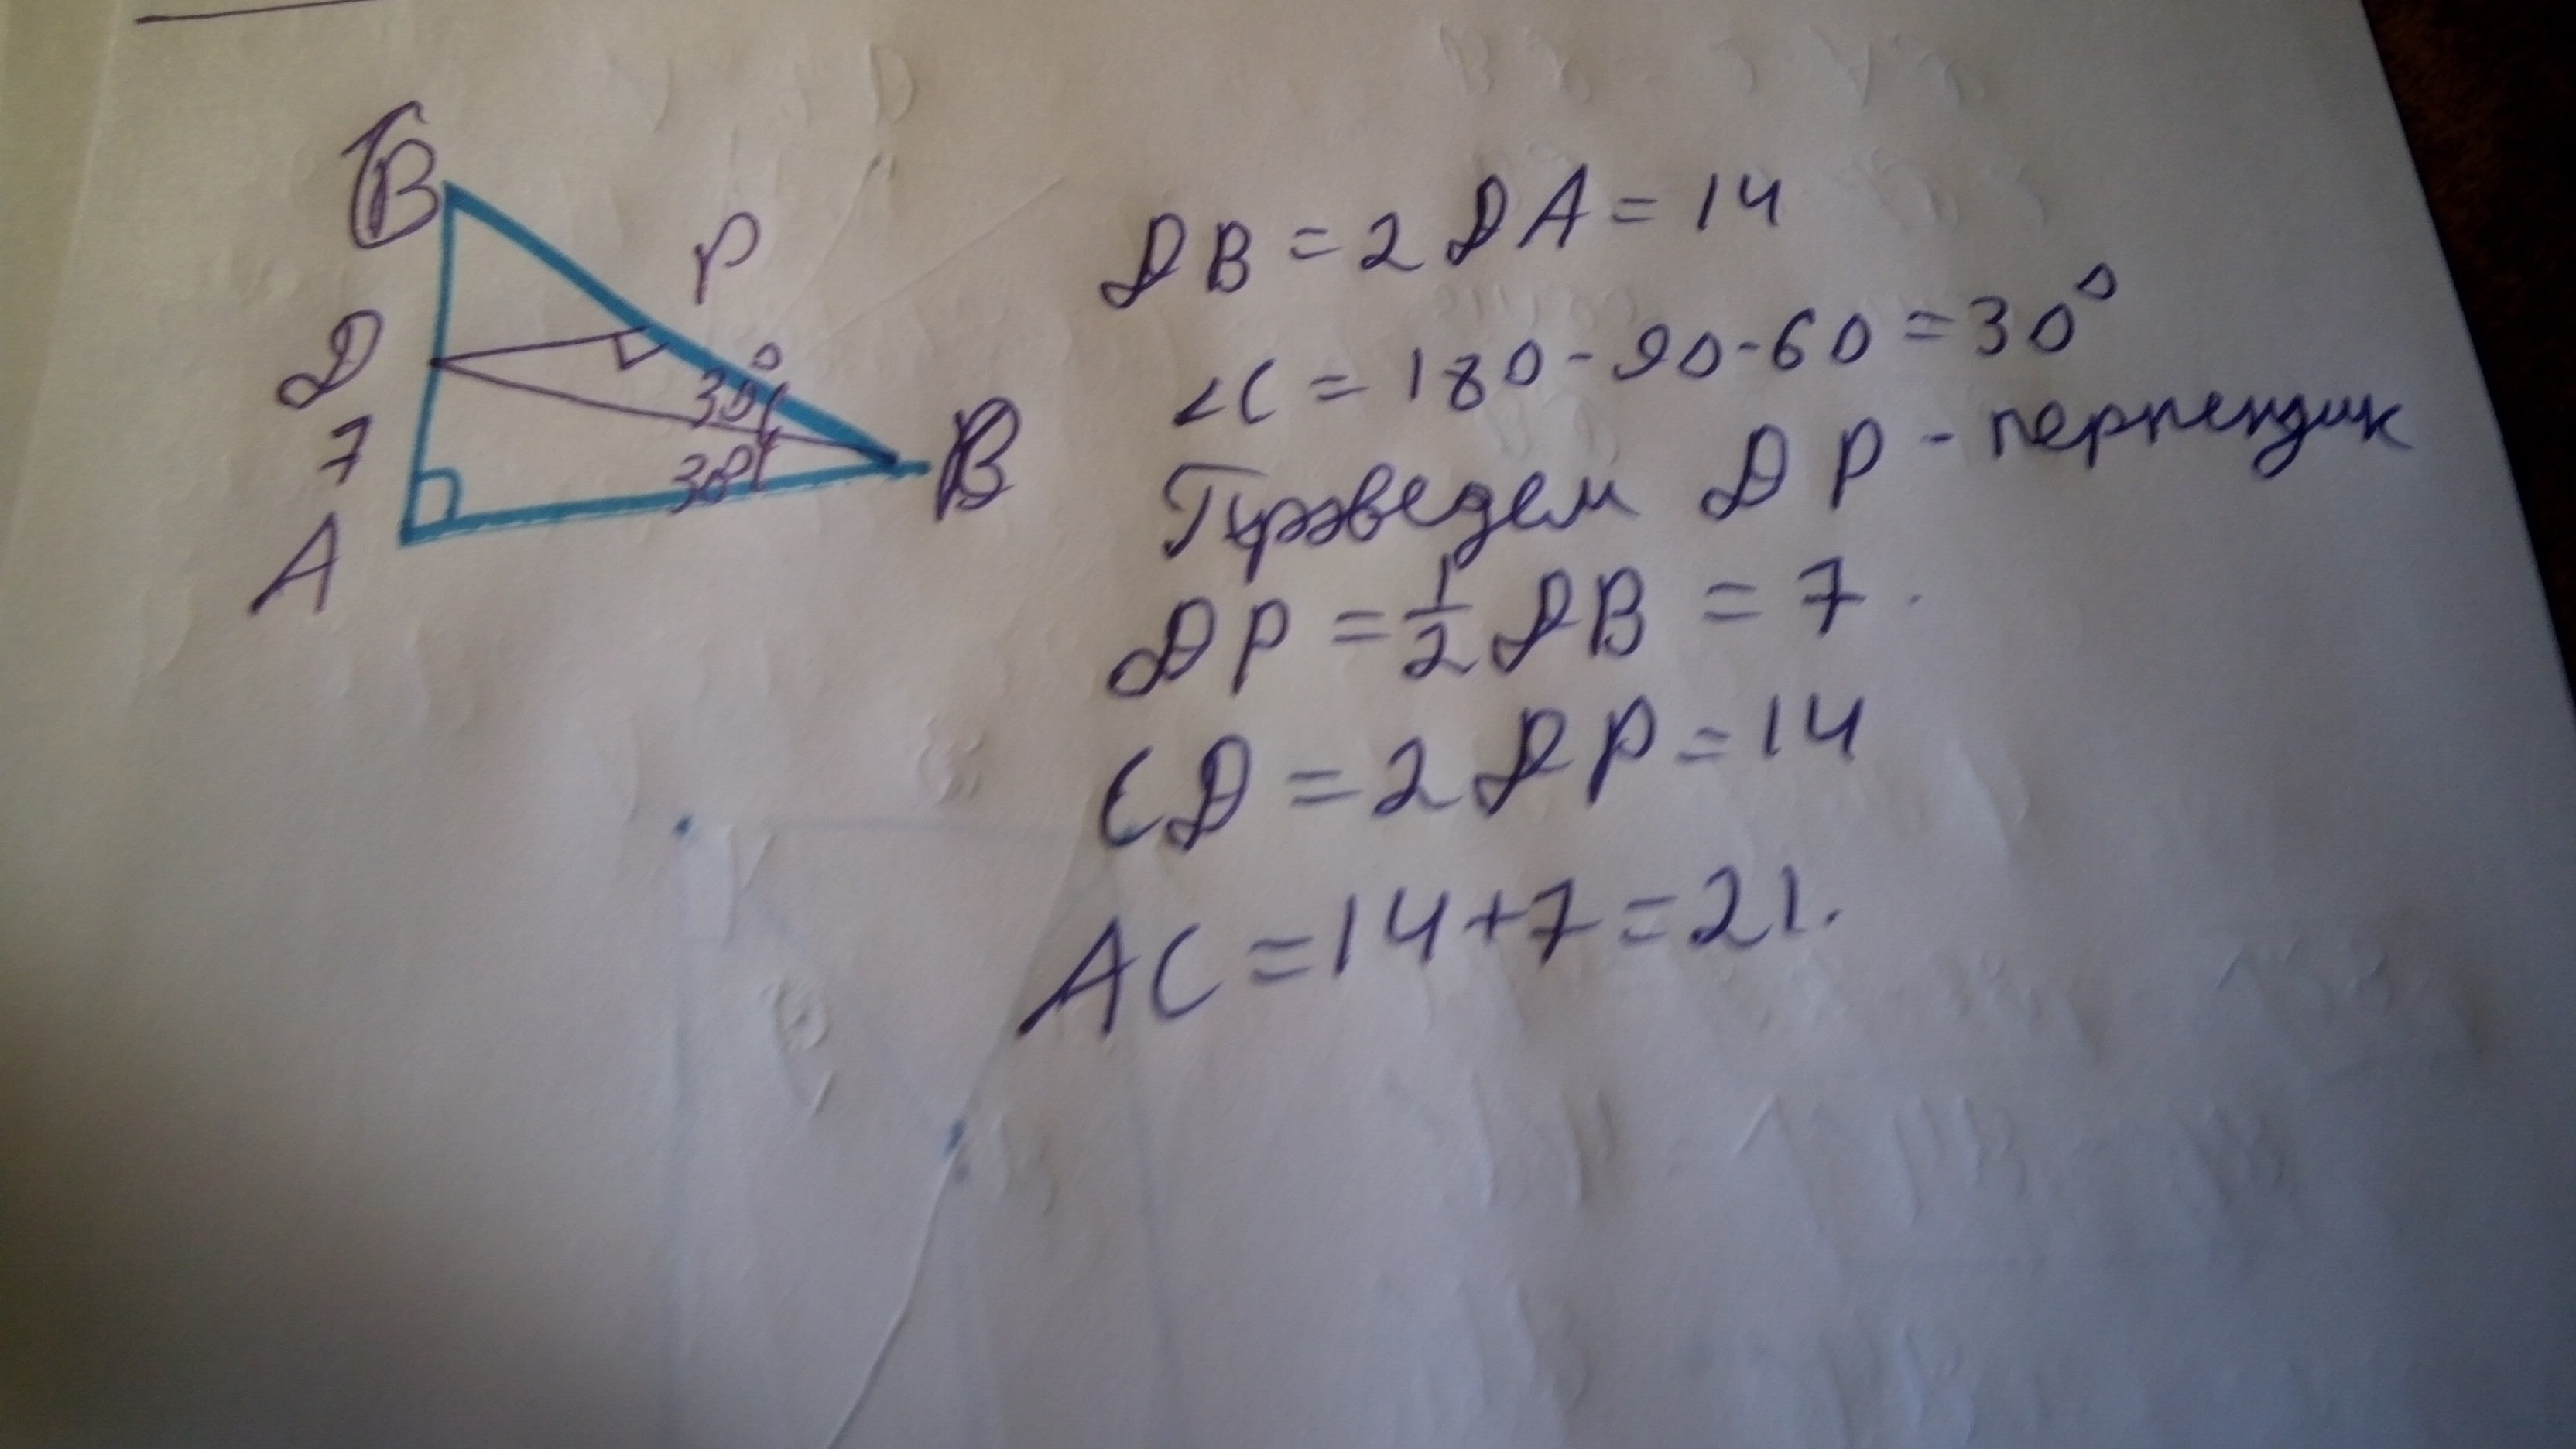 B
P
D
30°
7
30°
B
A
DB = 2 DA = 14
∠C = 180 - 90 - 60 = 30°
Проведем DP - перпендик
DP = 1/2 DB = 7.
CD = 2 DP = 14
AC = 14 + 7 = 21.